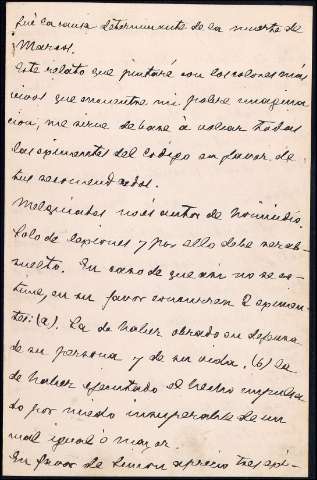 fué la causa determinante de la muerte de
Marcos.
Este relato que pintaré con los colores más
vivos que encuentre mi pobre imagina
ción, me sirve de base á volcar todas
las eximentes del Código en favor de
tus recomendados.
Melquiades no es autor de homicidio.
Solo de lesiones y por ello debe ser ab-
suelto. En caso de que así no se es-
time, en su favor concurren 2 eximen-
tes: (a). La de haber obrado en defensa
de su persona y de su vida. (b) la
de haber ejecutado el hecho impulsa
do por miedo insuperable de un
mal igual ó mayor.
En favor de Simon aprecio tres exi-